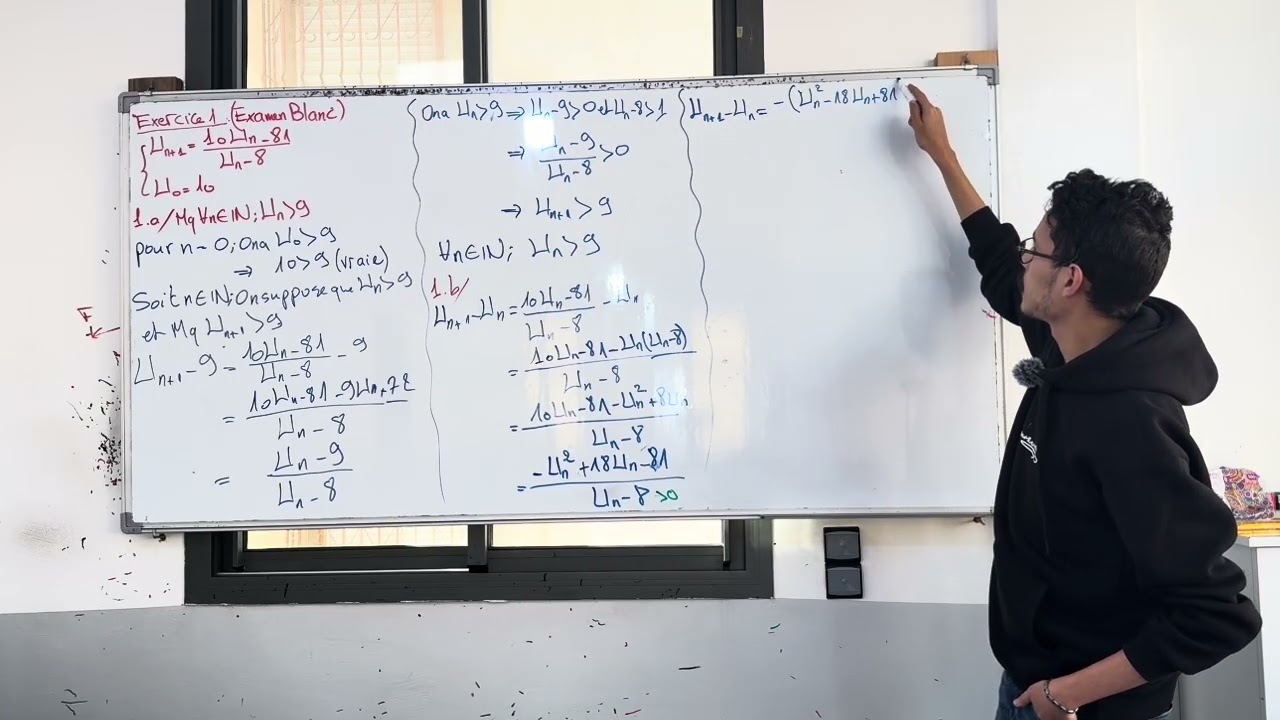 Exercice 1: (Examen Blanc)
U_{n+1} = \frac{10U_n - 81}{U_n - 8}
U_0 = 10
1.a/ Mq ∀n∈IN; U_n > 9
pour n = 0; On a U_0 > 9
⇒ 10 > 9 (vraie)
Soit n∈IN; On suppose que U_n > 9
et Mq U_{n+1} > 9
U_{n+1} - 9 = \frac{10U_n - 81}{U_n - 8} - 9
= \frac{10U_n - 81 - 9U_n + 72}{U_n - 8}
= \frac{U_n - 9}{U_n - 8}
On a U_n > 9 ⇒ U_n - 9 > 0 et U_n - 8 > 1
⇒ \frac{U_n - 9}{U_n - 8} > 0
⇒ U_{n+1} > 9
∀n∈IN; U_n > 9
1.b/
U_{n+1} - U_n = \frac{10U_n - 81}{U_n - 8} - U_n
= \frac{10U_n - 81 - U_n(U_n - 8)}{U_n - 8}
= \frac{10U_n - 81 - U_n^2 + 8U_n}{U_n - 8}
= \frac{-U_n^2 + 18U_n - 81}{U_n - 8 > 0}
U_{n+1} - U_n = - (U_n^2 - 18U_n + 81
F